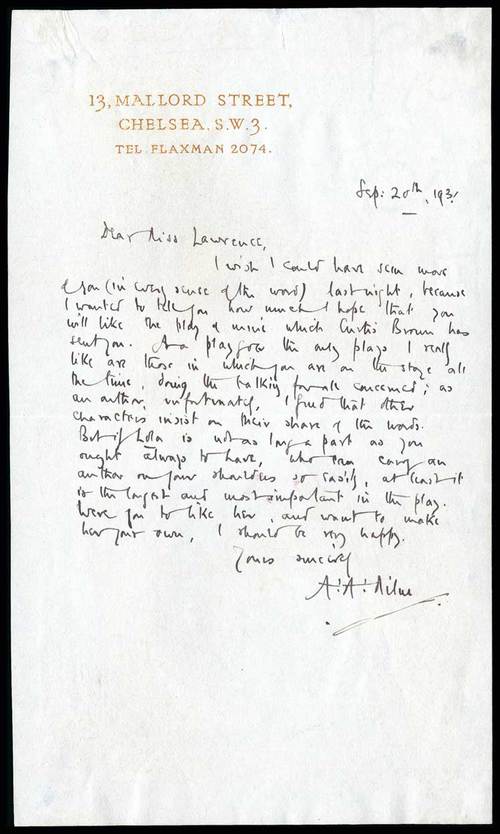 13, MALLORD STREET,
CHELSEA. S.W.3.
TEL. FLAXMAN 2074.
Sep: 20th, 193
Dear Miss Lawrence,
I wish I could have seen more
of you (in every sense of the word) last night, because
I wanted to tell you how much I hope that you
will like the play of mine which Curtis Brown has
sent you. As a playgoer the only plays I really
like are those in which you are on the stage all
the time, doing the talking for all concerned; as
an author, unfortunately, I find that other
characters insist on their share of the words.
But if Lola is not as long a part as you
ought always to have, who can carry an
author on your shoulders so easily, at least it
is the largest and most important in the play.
Were you to like her, and want to make
her your own, I should be very happy.
Yours sincerely
A. A. Milne